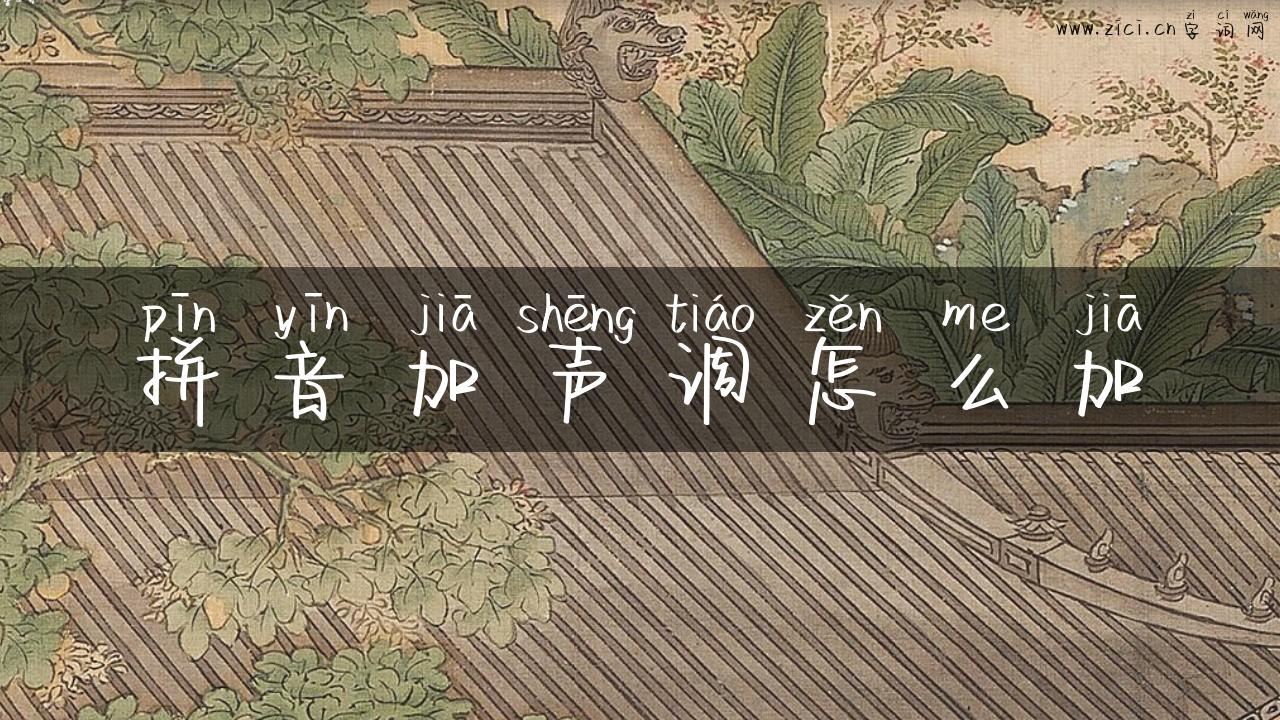 zì cí wǎng
www.zici.cn 字词网
pīn yīn jiā shēng tiáo zěn me jiā
拼音加声调怎么加